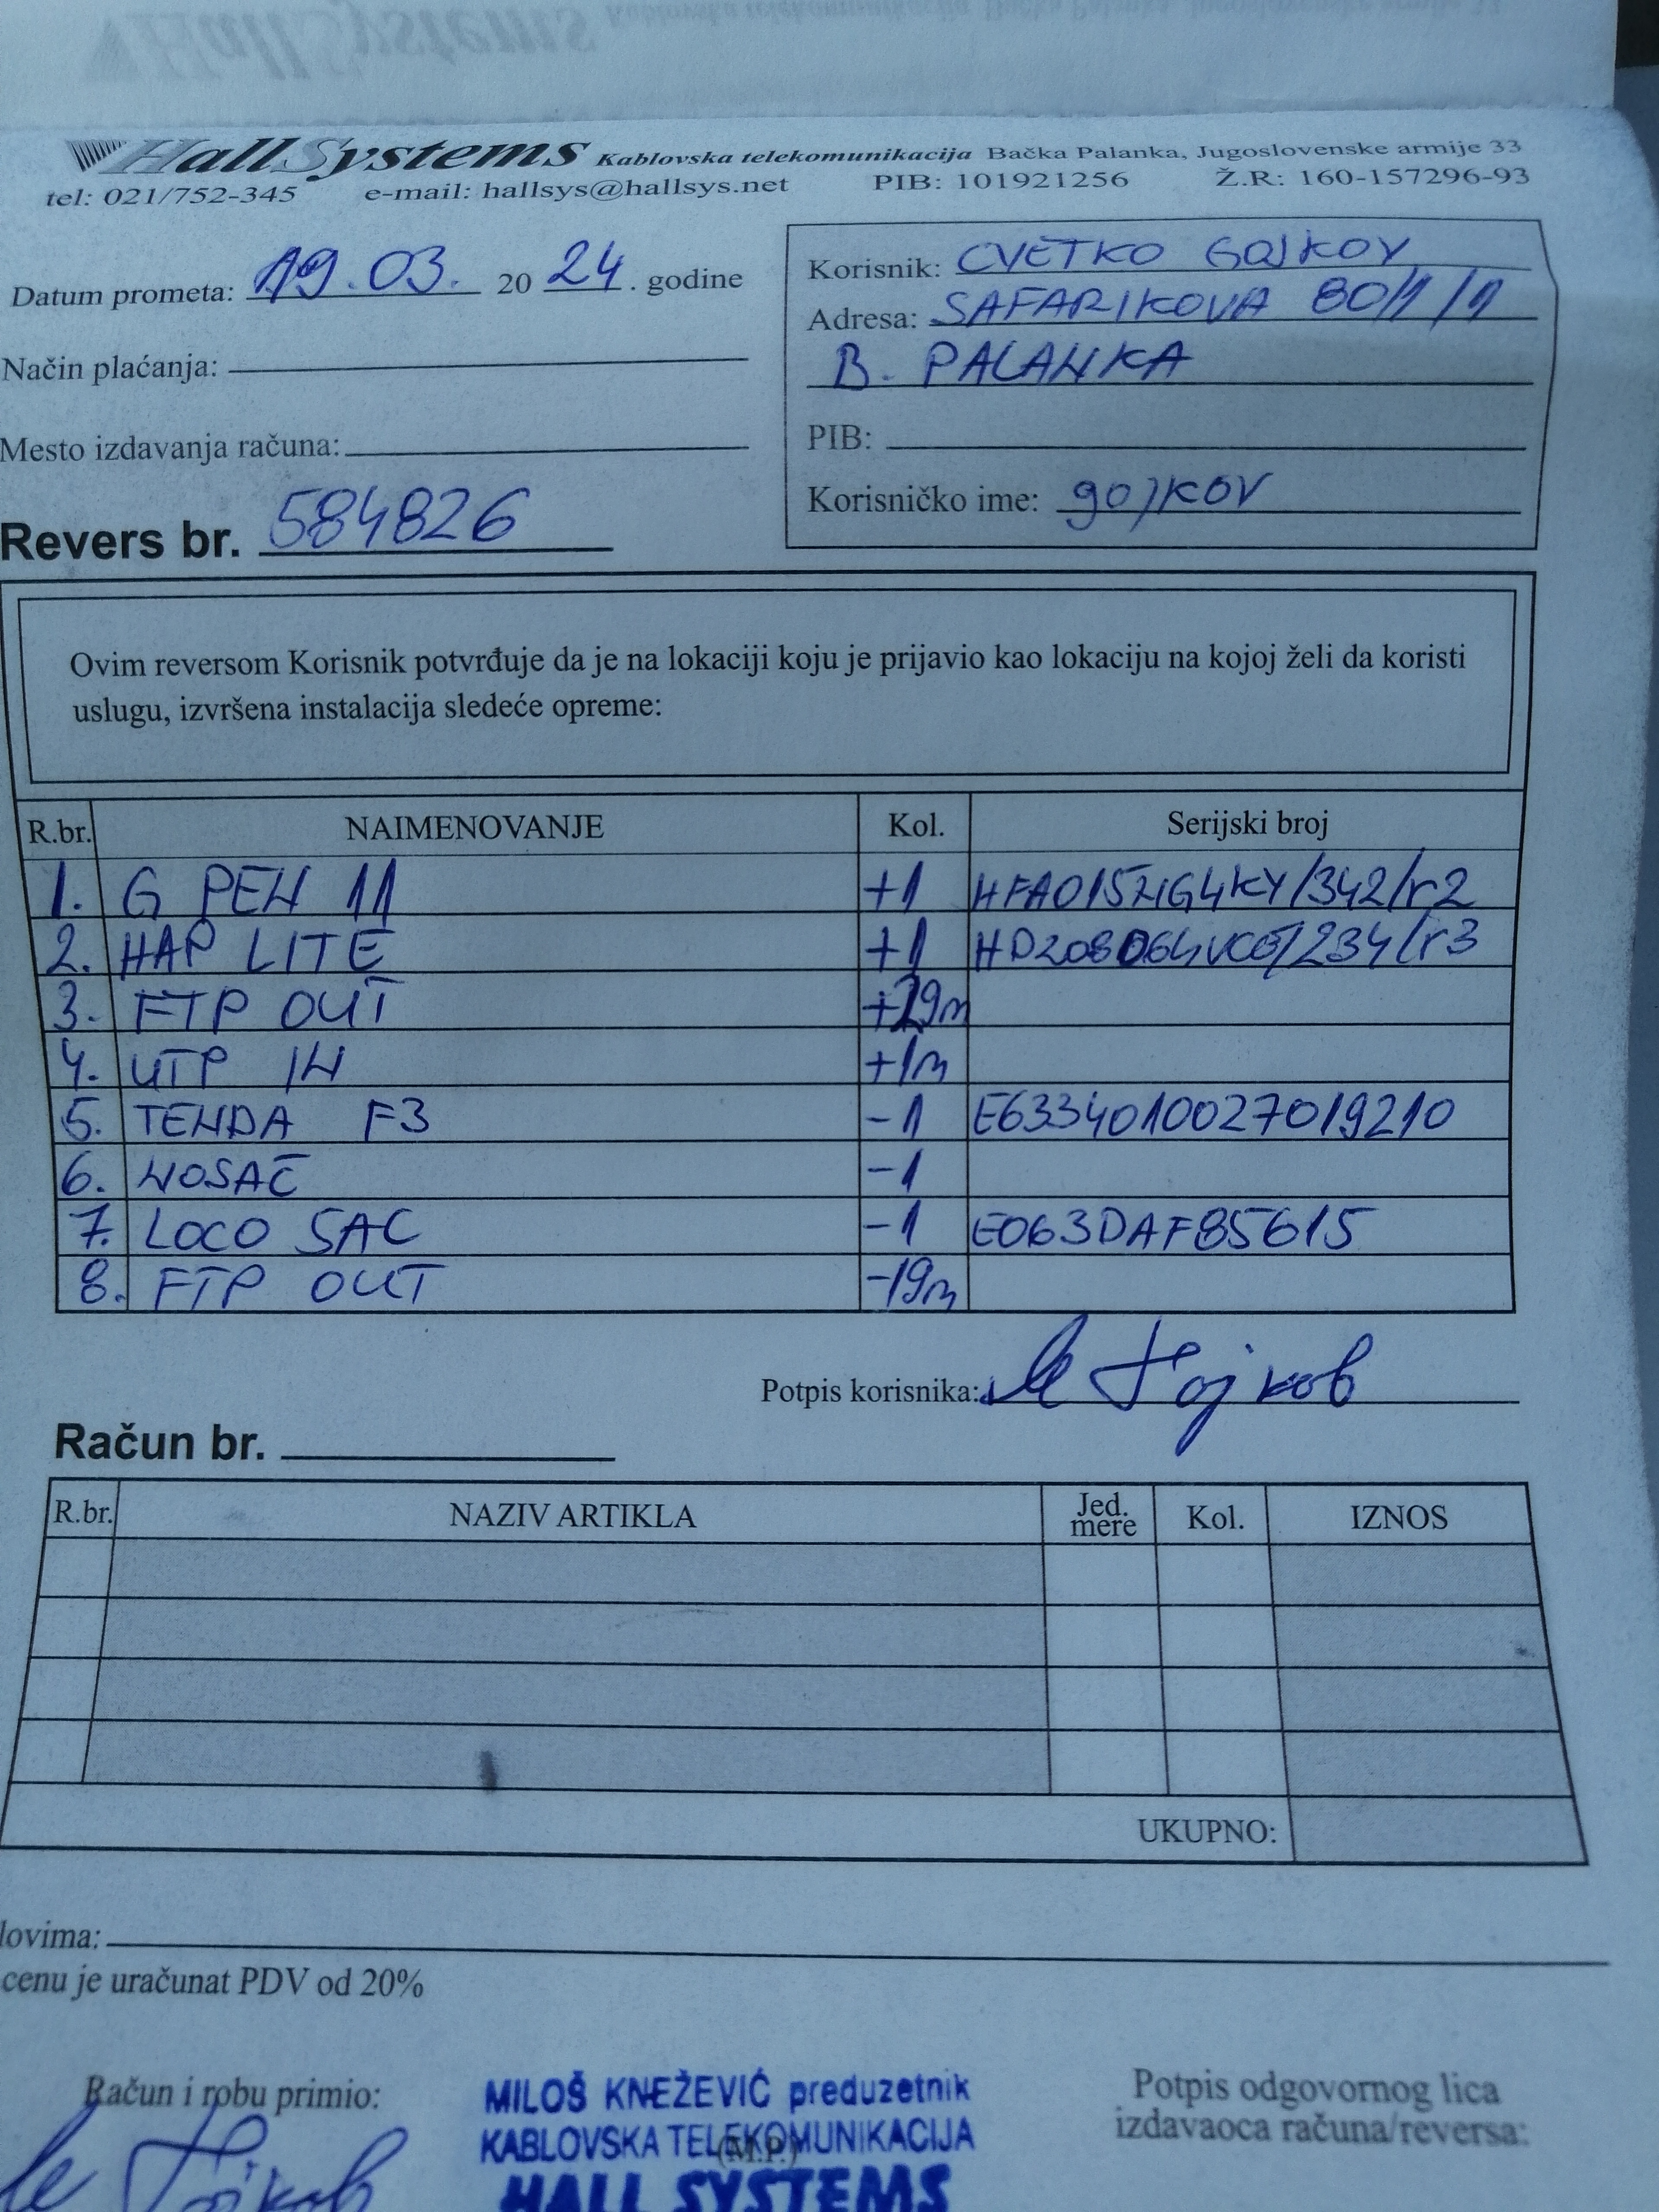 HallSystems Kablovska telekomunikacija Bačka Palanka, Jugoslovenske armije 33
tel: 021/752-345 e-mail: hallsys@hallsys.net PIB: 101921256 Ž.R: 160-157296-93
Datum prometa: 19.03. 20 24. godine
Način plaćanja:
Mesto izdavanja računa:
Revers br. 584826
Korisnik: CVETKO GOJKOV
Adresa: SAFARIKOVA 80/1/1
B. PALANKA
PIB:
Korisničko ime: gojkov
Ovim reversom Korisnik potvrđuje da je na lokaciji koju je prijavio kao lokaciju na kojoj želi da koristi
uslugu, izvršena instalacija sledeće opreme:
R.br. NAIMENOVANJE Kol. Serijski broj
1. G PEN 11 +1
2. HAP LITE +1
3. FTP OUT +29m
4. UTP IN +1m
5. TENDA F3 -1 E6334010027019210
6. NOSAČ -1
7. LOCO 5AC -1 E063DAF85615
8. FTP OUT -19m
Potpis korisnika:
Račun br.
R.br. NAZIV ARTIKLA Jed. mere Kol. IZNOS
UKUPNO:
lovima:
cenu je uračunat PDV od 20%
Račun i robu primio:
MILOŠ KNEŽEVIĆ preduzetnik
KABLOVSKA TELEKOMUNIKACIJA
(M.P.)
HALL SYSTEMS
Potpis odgovornog lica
izdavaoca računa/reversa: